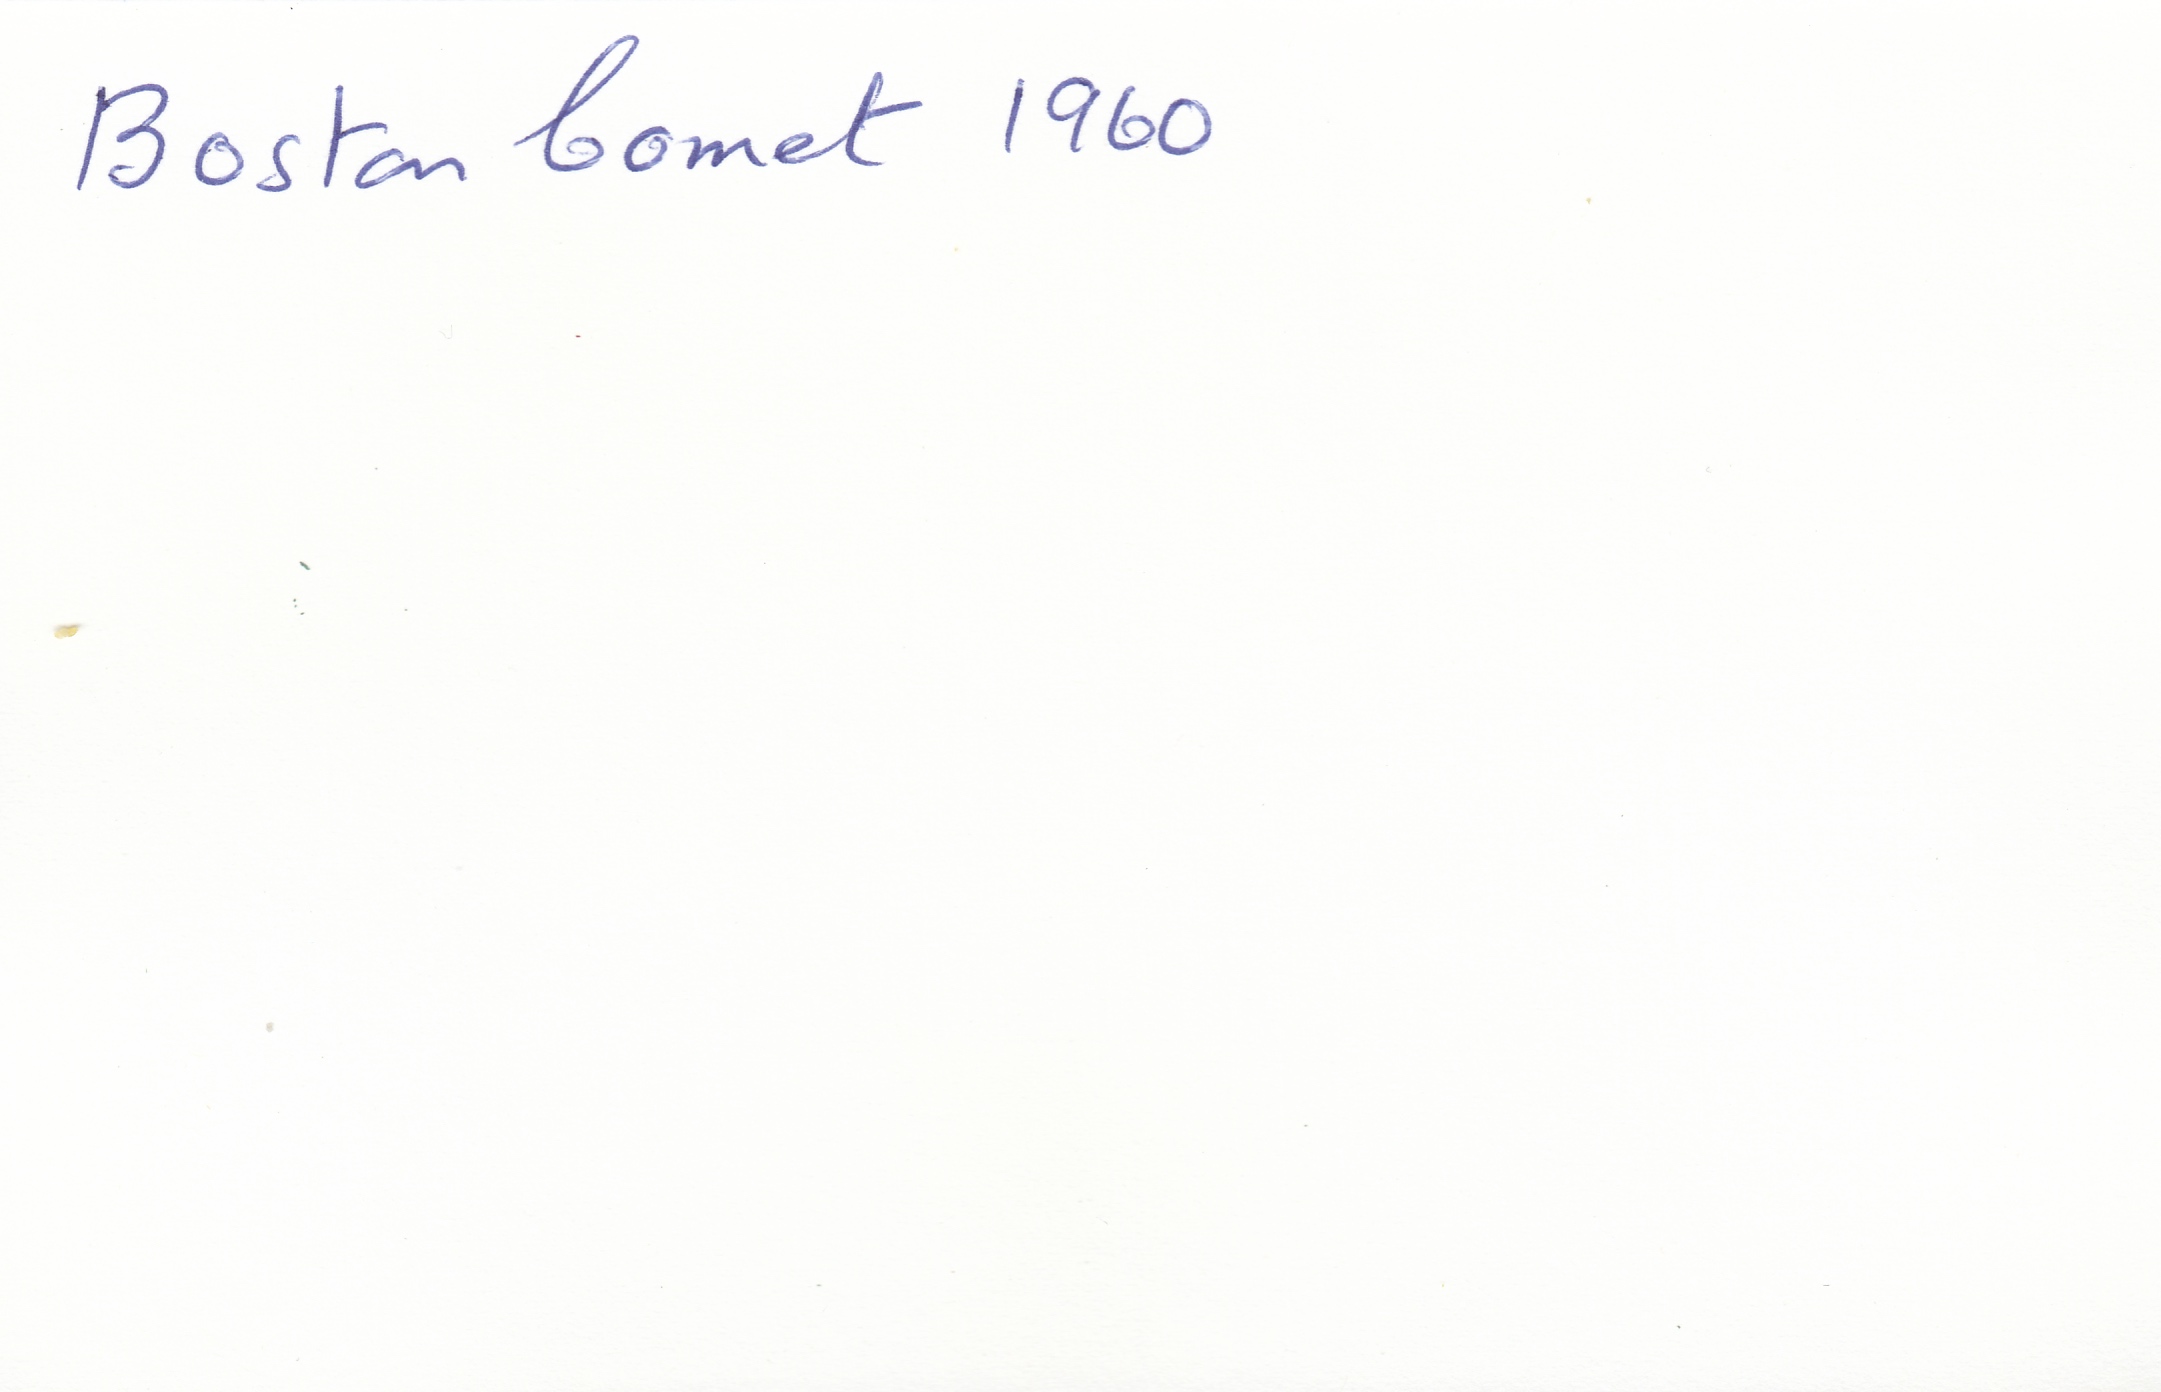 Boston Comet 1960